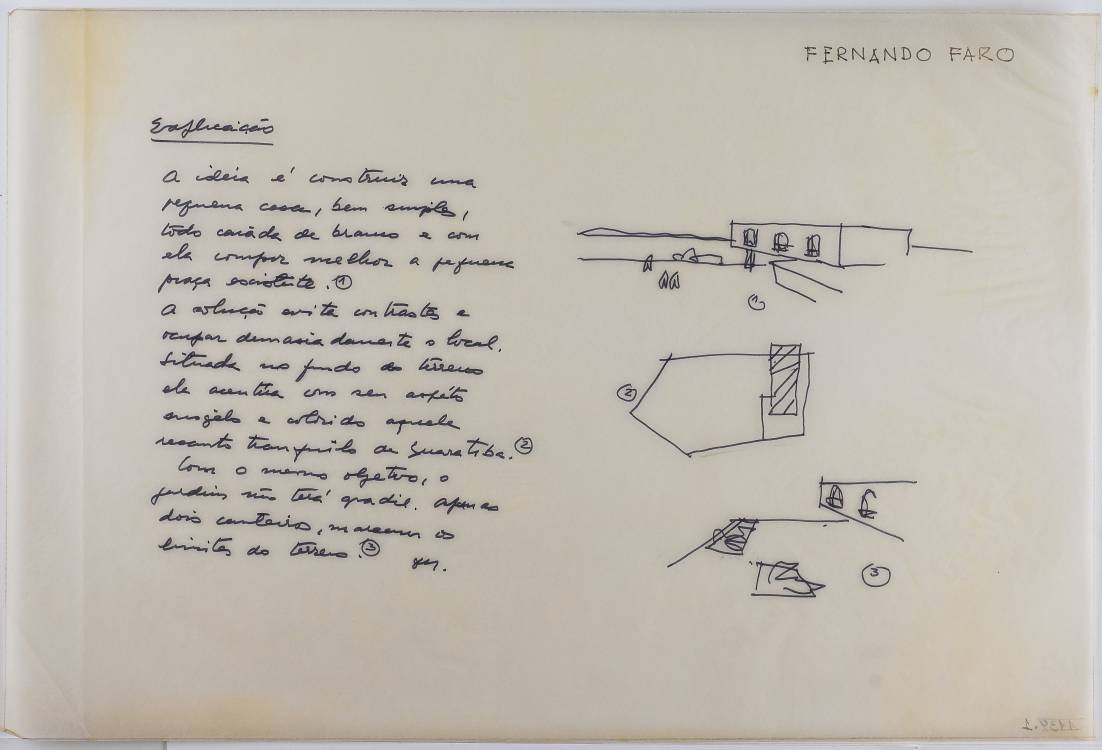 FERNANDO FARO
Explicação
A ideia é construir uma
pequena casa, bem simples,
toda caiada de branco e com
ela compor melhor a pequena
praça existente. ①
A solução evita contrastes e
ocupar demasiadamente o local.
Situada no fundo do terreno
ela acentua com seu aspéto
singelo e colorido aquele
recanto tranquilo de Guaratiba. ②
Com o mesmo objetivo, o
jardim não terá gradil. Apenas
dois canteiros, marcam os
limites do terreno. ③
①
②
③